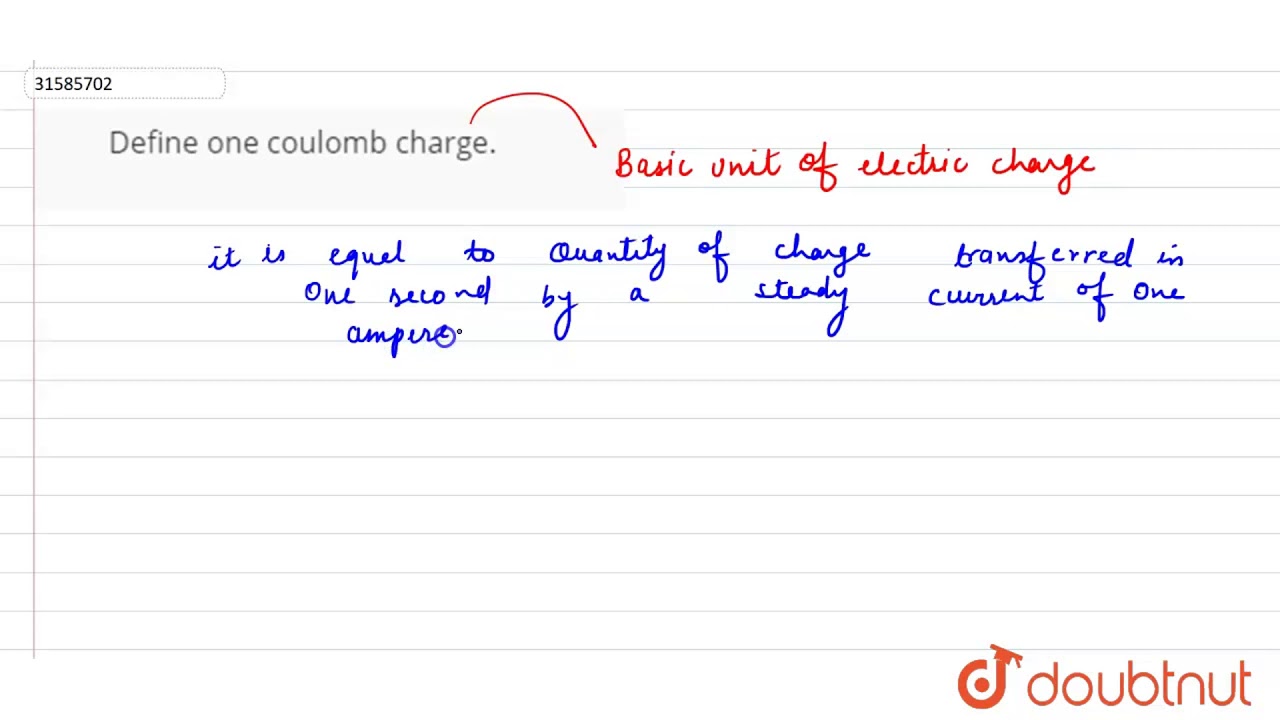 31585702
Define one coulomb charge.
Basic unit of electric charge
it is equal to Quantity of charge transferred in
One second by a steady current of one
ampere
doubtnut